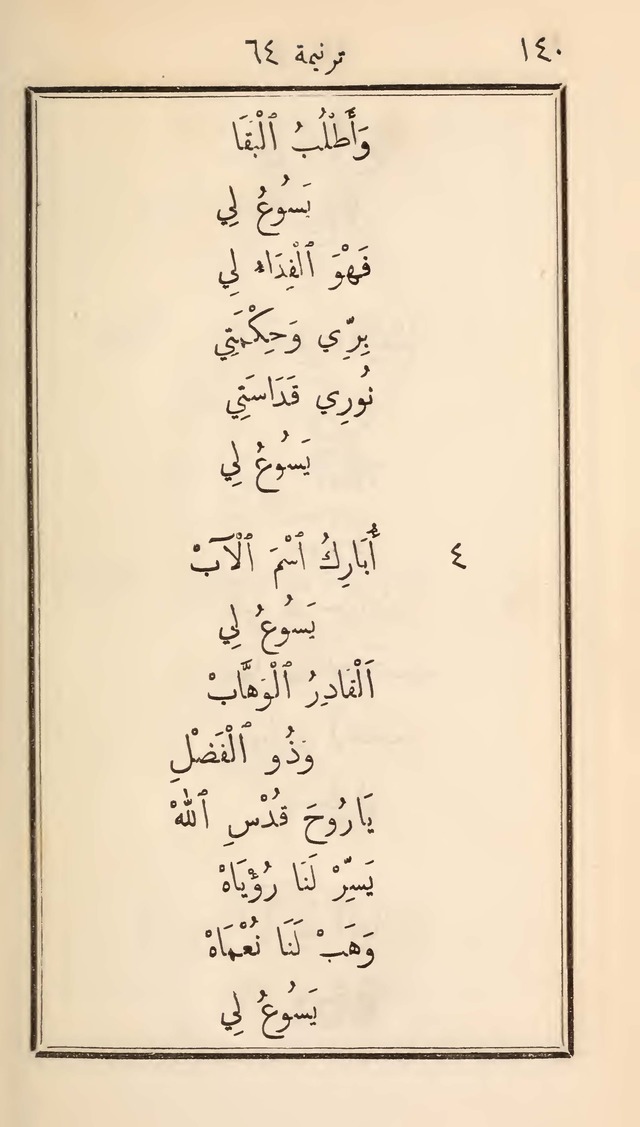 ١٤٠ ترنيمة ٦٤
وَأَطْلُبُ ٱلْبَقَا
يَسُوعُ لِي
فَهْوَ ٱلْفِدَاءُ لِي
بِرِّي وَحِكْمَتِي
نُورِي قَدَاسَتِي
يَسُوعُ لِي
٤ أُبَارِكُ ٱسْمَ ٱلْآبْ
يَسُوعُ لِي
اَلْقَادِرُ ٱلْوَهَّابْ
وَذُو ٱلْفَضْلِ
يَا رُوحَ قُدْسِ ٱللهْ
يَسِّرْ لَنَا رُؤْيَاهْ
وَهَبْ لَنَا نُعْمَاهْ
يَسُوعُ لِي